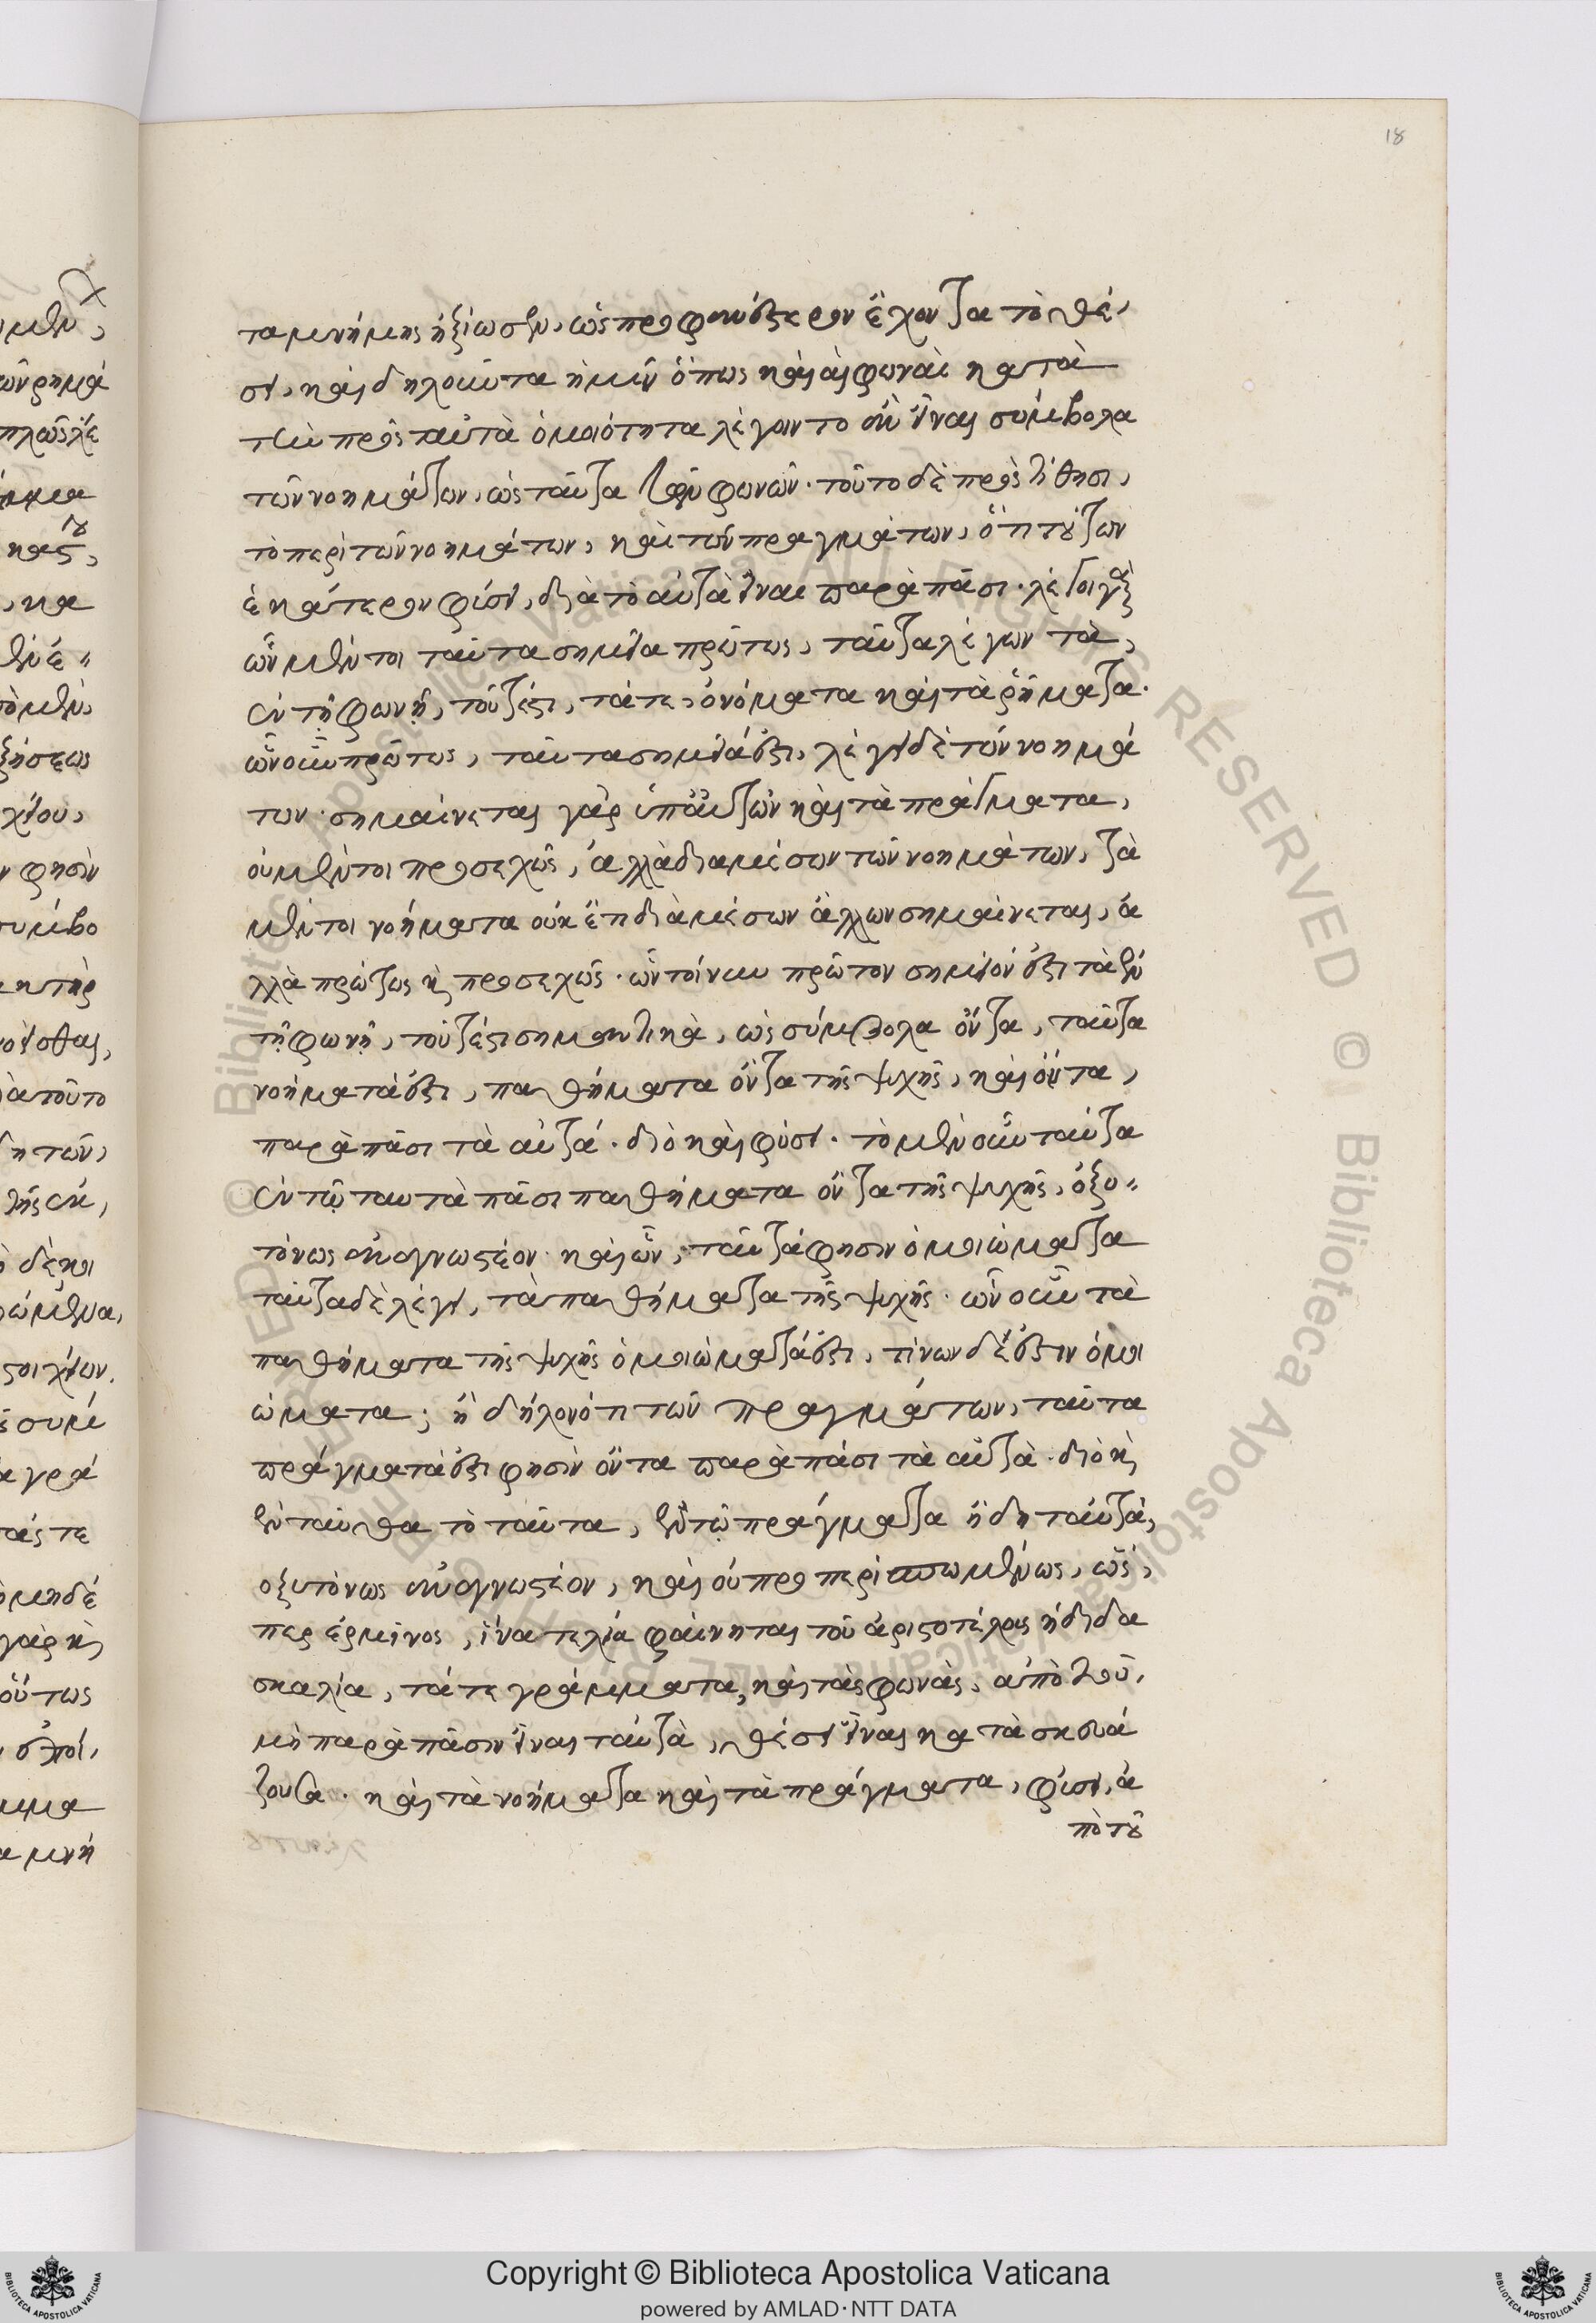 18
τα μνήμης ἠξίωσεν, ὡς προφανέστερον ἔχοντα τὸ θέ,
σει, καὶ δηλοῦντα ἡμῖν ὅπως καὶ αἱ φωναὶ κατὰ
τὴν πρὸς ταῦτα ὁμοιότητα λέγοιντο ἂν εἶναι σύμβολα
τῶν νοημάτων, ὡς ταῦτα τῶν φωνῶν. τοῦτο δὲ προστίθησι,
τὸ περὶ τῶν νοημάτων, καὶ τῶν πραγμάτων, ὅτι τούτων
ἑκάτερον φύσει, διὰ τὸ αὐτὰ εἶναι παρὰ πᾶσι. λέγει γὰρ
ὧν μέντοι ταῦτα σημεῖα πρώτως, ταῦτα λέγων τὰ,
ἐν τῇ φωνῇ, τουτέστι, τά τε ὀνόματα καὶ τὰ ῥήματα.
ὧν οὖν πρώτως, ταῦτα σημεῖά ἐστι, λέγει δὲ τῶν νοημά
των. σημαίνεται γὰρ ὑπ' αὐτῶν καὶ τὰ πράγματα,
οὐ μέντοι προσεχῶς, ἀλλὰ διὰ μέσων τῶν νοημάτων, τὰ
μέντοι νοήματα οὐκ ἔτι διὰ μέσων ἄλλων σημαίνεται, ἀ
λλὰ πρώτως κ προσεχῶς. ὧν τοίνυν πρῶτον σημεῖόν ἐστι τὰ ἐν
τῇ φωνῇ, τουτέστι σημαντικὰ, ὡς σύμβολα ὄντα, ταῦτα
νοήματά ἐστι, παθήματα ὄντα τῆς ψυχῆς, καὶ ὄντα,
παρὰ πᾶσι τὰ αὐτά. διὸ καὶ φύσει. τὸ μὲν οὖν ταῦτα
ἐν τῷ ταυτὰ πᾶσι παθήματα ὄντα τῆς ψυχῆς, ὀξυ〃
τόνως ἀναγνωστέον. καὶ ὧν, ταῦτά φησιν ὁμοιώματα
ταῦτα δὲ λέγει, τὰ παθήματα τῆς ψυχῆς. ὧν οὖν τὰ
παθήματα τῆς ψυχῆς ὁμοιώματά ἐστι, τίνων δέ ἐστιν ὁμοι
ώματα; ἢ δηλονότι τῶν πραγμάτων, ταῦτα
πράγματά ἐστι φησὶν ὄντα παρὰ πᾶσι τὰ αὐτὰ. διὸ κ
ἐνταῦθα τὸ ταῦτα, ἐν τῷ πράγματα ἤδη ταὐτὰ,
οξυτόνως ἀναγνωστέον, καὶ οὐ προπερισπωμένως, ὥς,
περ ἑρμῖνος, ἵνα τελεία φαίνηται τοῦ ἀριστοτέλους ἡ διδα
σκαλία, τά τε γράμματα, καὶ τὰς φωνὰς, ἀπὸ τοῦ,
μὴ παρὰ πᾶσιν εἶναι ταὐτὰ, θέσει εἶναι κατασκευά
ζουσα. καὶ τὰ νοήματα καὶ τὰ πράγματα, φύσει, ἀ
πὸ τοῦ